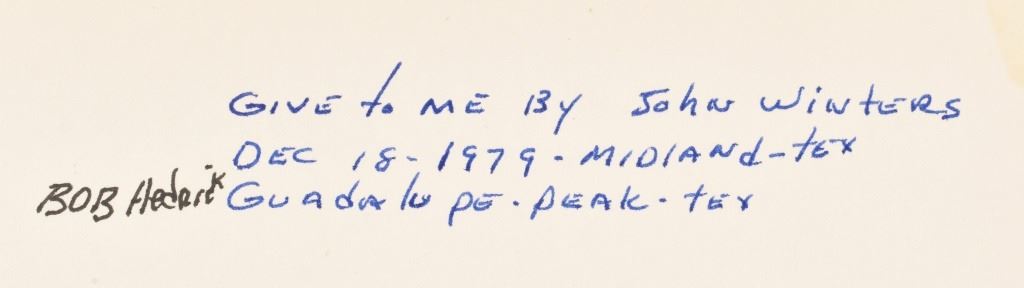 GIVE to ME BY John WINTERS
DEC 18-1979-MIDLANd-tEX
BOB Hedrick GUAdAluPE-PEAK-tEX